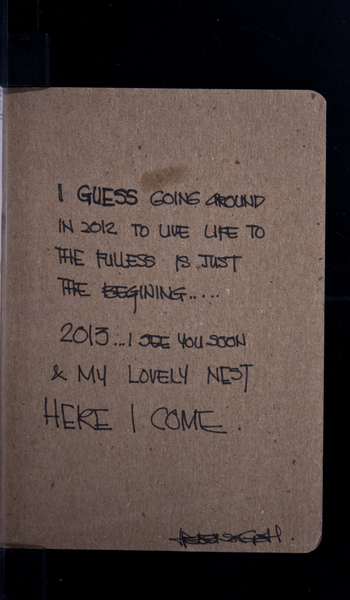 I GUESS GOING AROUND
IN 2012 TO LIVE LIFE TO
THE FULLESS IS JUST
THE BEGINING.....
2013...I SEE YOU SOON
& MY LOVELY NEST
HERE I COME.